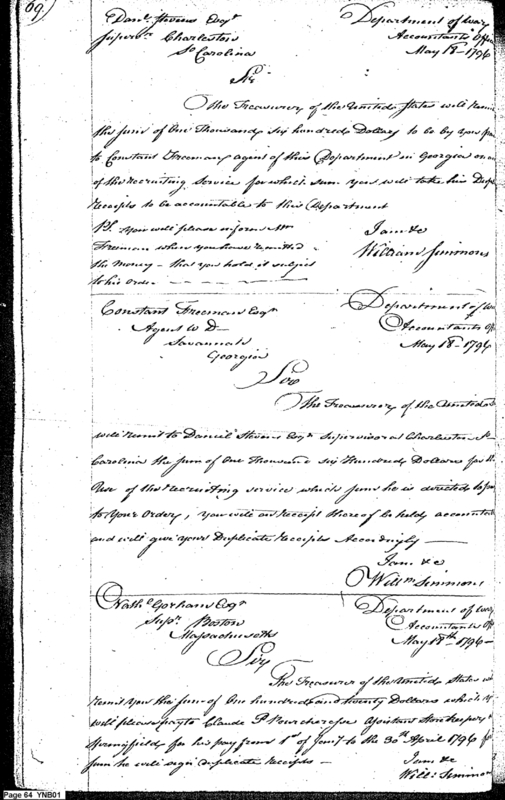 69.
Danl. Stevens Esqr
Supervr. Charleston
So Carolina
Department of War
Accountants Offi
May 18- 1796
Sir
The Treasurer of the United States will remit
the sum of One Thousand six hundred Dollars to be by you
to Constant Freeman agent of this Department in Georgia on
of the recruiting Service for which sum you will take his Dup
receipts to be accountable to this Department
PS. You will please inform Mr
Freeman when you have remitted
the money - that you hold it subject
to his order.
I am &c
William Simmons
Constant Freeman Esqr
Agent W D
Savannah
Georgia
Department of W
Accountants Of
May 18- 1796
Sir
The Treasurer of the United
will remit to Daniel Stevens Esqr Supervisor at Charleston So
Carolina the sum of One Thousand six Hundred Dollars for the
Use of the recruiting service which sum he is directed to
to your Order, you will on receipt thereof be held accountab
and will give your Duplicate receipts Accordingly
I am &c
Willm Simmons
Nathl Gorham Esqr
Supr. Boston
Massachusetts
Department of War
Accountants Off
May 18th 1796
Sir
The Treasurer of the United States w
remit you the sum of One hundred and twenty Dollars which
will please pay to Claude P Assistant Storekeeper
Springfield for his pay from 1st of Jany to the 30th April 1796 for
sum he will sign duplicate receipts -
I am &c
Willm Simmon
Page 64 YNB01